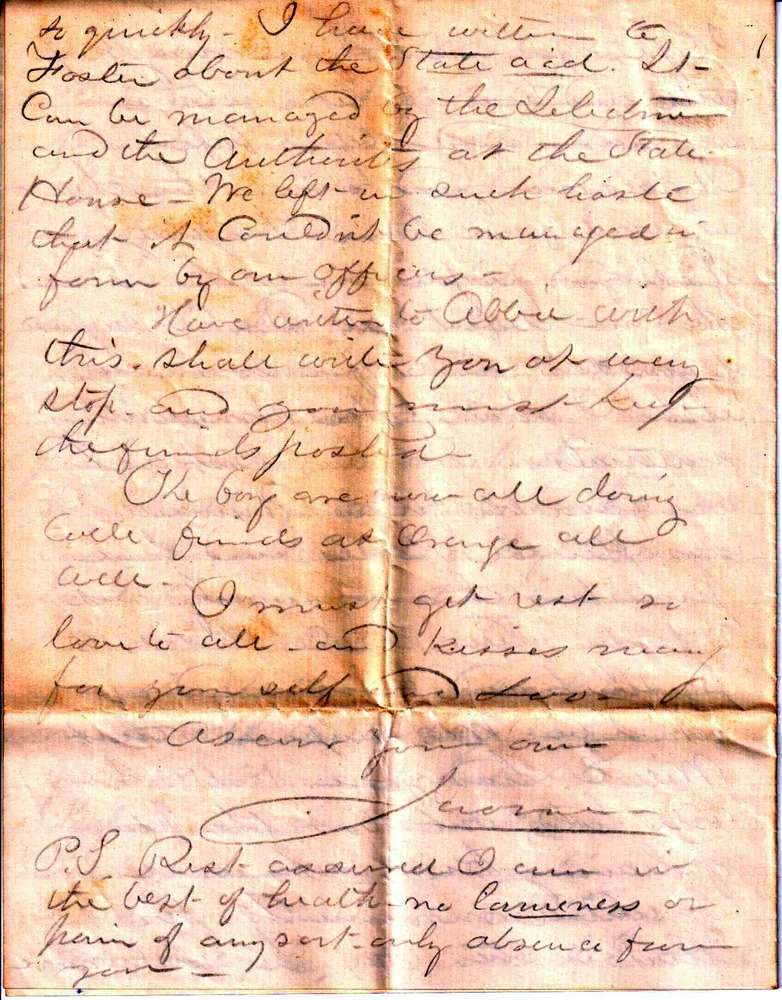 so quickly - I have written to
Foster about the State aid. It
Can be managed by the Selectmen
and the Authorities at the State
House - We left in such haste
that it Couldn't be managed in
form by our officers -
Have written to Abbie with
this. shall write you at every
stop. and you must keep
the friends posted
The boys are now all doing
well. friends at Orange all
well -
I must get rest so
love to all - and kisses many
for yourself and
As ever your own
P.S. Rest assured I am in
the best of health - no lameness or
pain of any sort - only absence from
you -